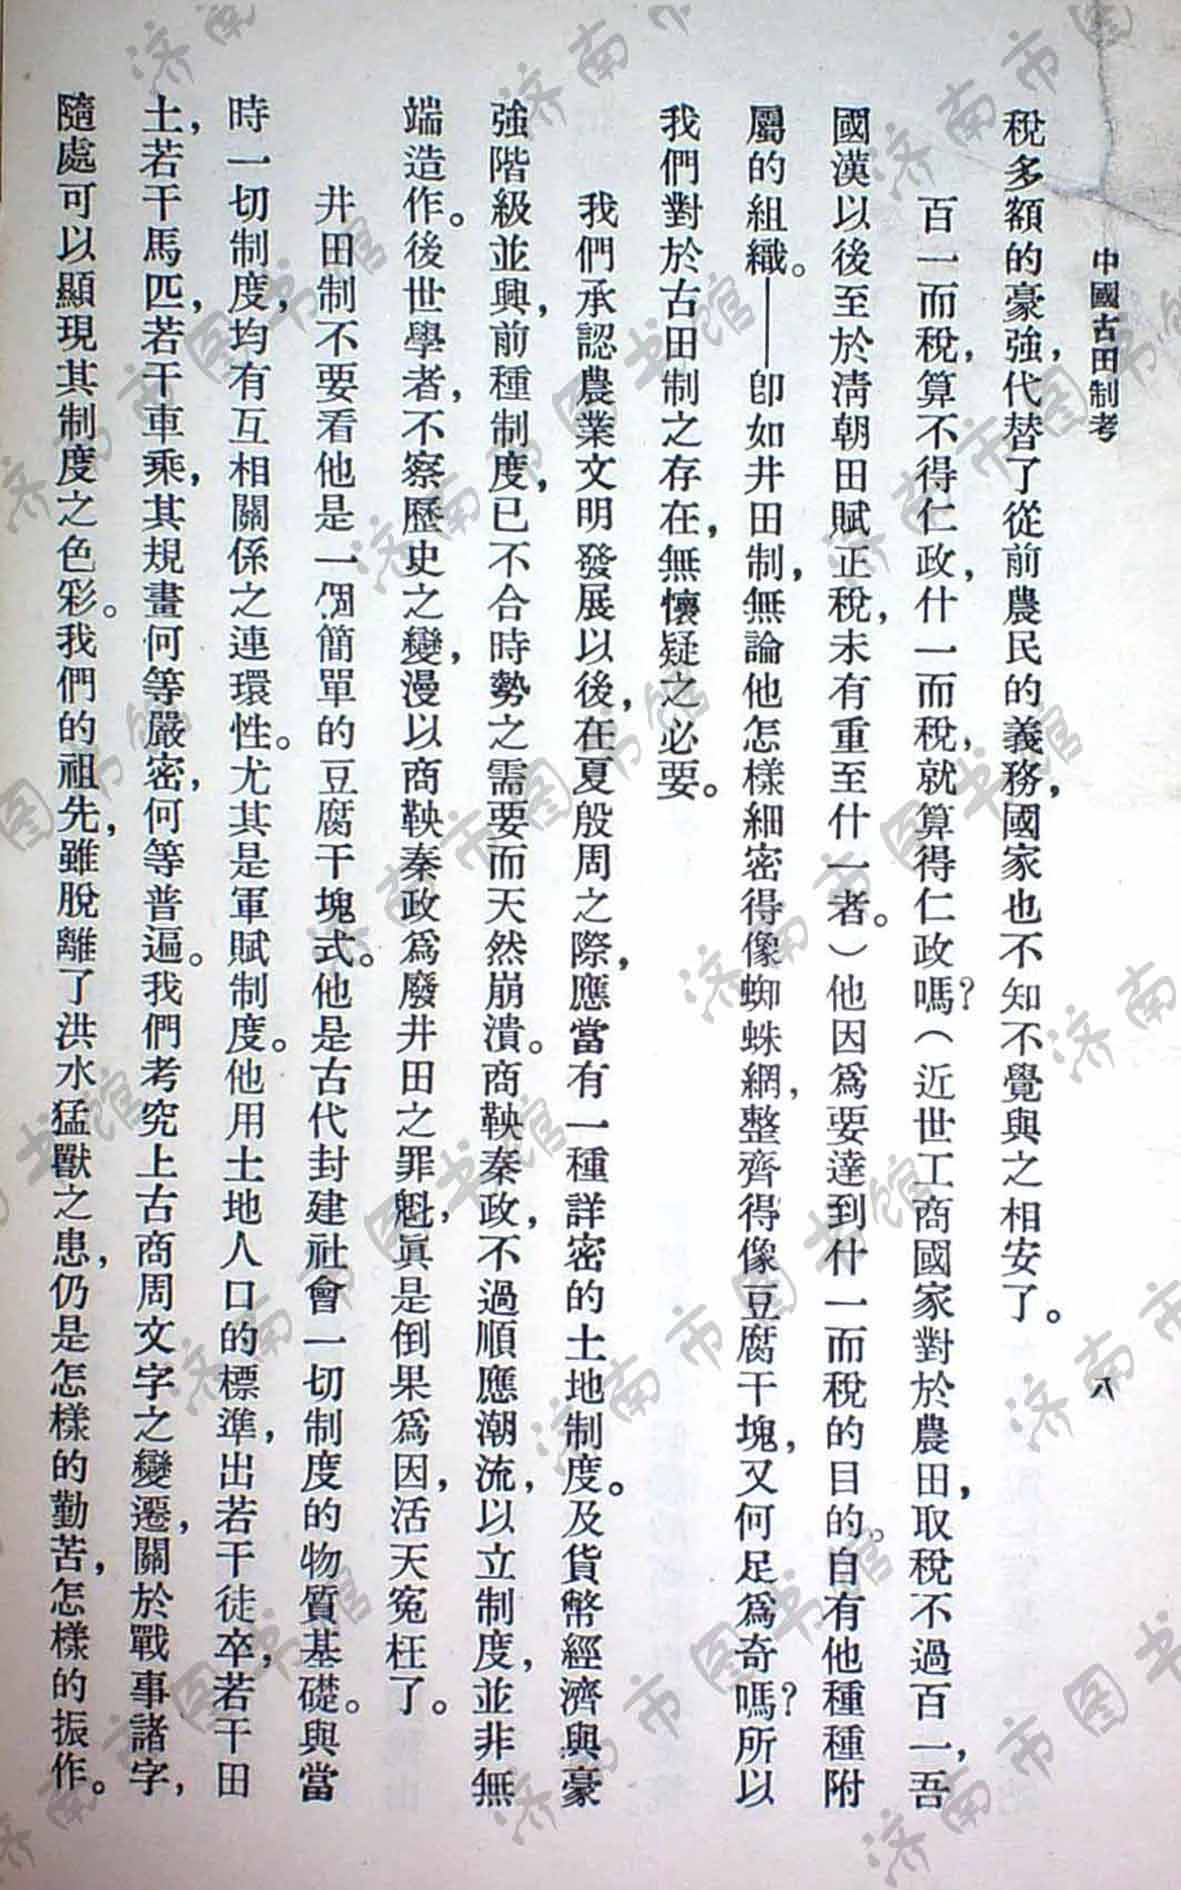 中國古田制考
八
稅多額的豪強，代替了從前農民的義務，國家也不知不覺與之相安了。
百一而稅，算不得仁政，什一而稅，就算得仁政嗎？（近世工商國家對於農田，取稅不過百一，吾
國漢以後至於淸朝田賦正稅，未有重至什一者。）他因爲要達到什一而稅的目的。自有他種種附
屬的組織。——卽如井田制，無論他怎樣細密得像蜘蛛網，整齊得像豆腐干塊，又何足爲奇嗎？所以
我們對於古田制之存在，無懷疑之必要。
我們承認農業文明發展以後，在夏殷周之際，應當有一種詳密的土地制度。及貨幣經濟與豪
強階級並興，前種制度，已不合時勢之需要而天然崩潰。商鞅秦政，不過順應潮流，以立制度，並非無
端造作。後世學者，不察歷史之變，漫以商鞅秦政爲廢井田之罪魁，眞是倒果爲因，活天冤枉了。
井田制不要看他是一個簡單的豆腐干塊式。他是古代封建社會一切制度的物質基礎。與當
時一切制度，均有互相關係之連環性。尤其是軍賦制度。他用土地人口的標準，出若干徒卒，若干田
土，若干馬匹，若干車乘，其規畫何等嚴密，何等普遍。我們考究上古商周文字之變遷，關於戰事諸字，
隨處可以顯現其制度之色彩。我們的祖先，雖脫離了洪水猛獸之患，仍是怎樣的勤苦，怎樣的振作。
济南市图书馆